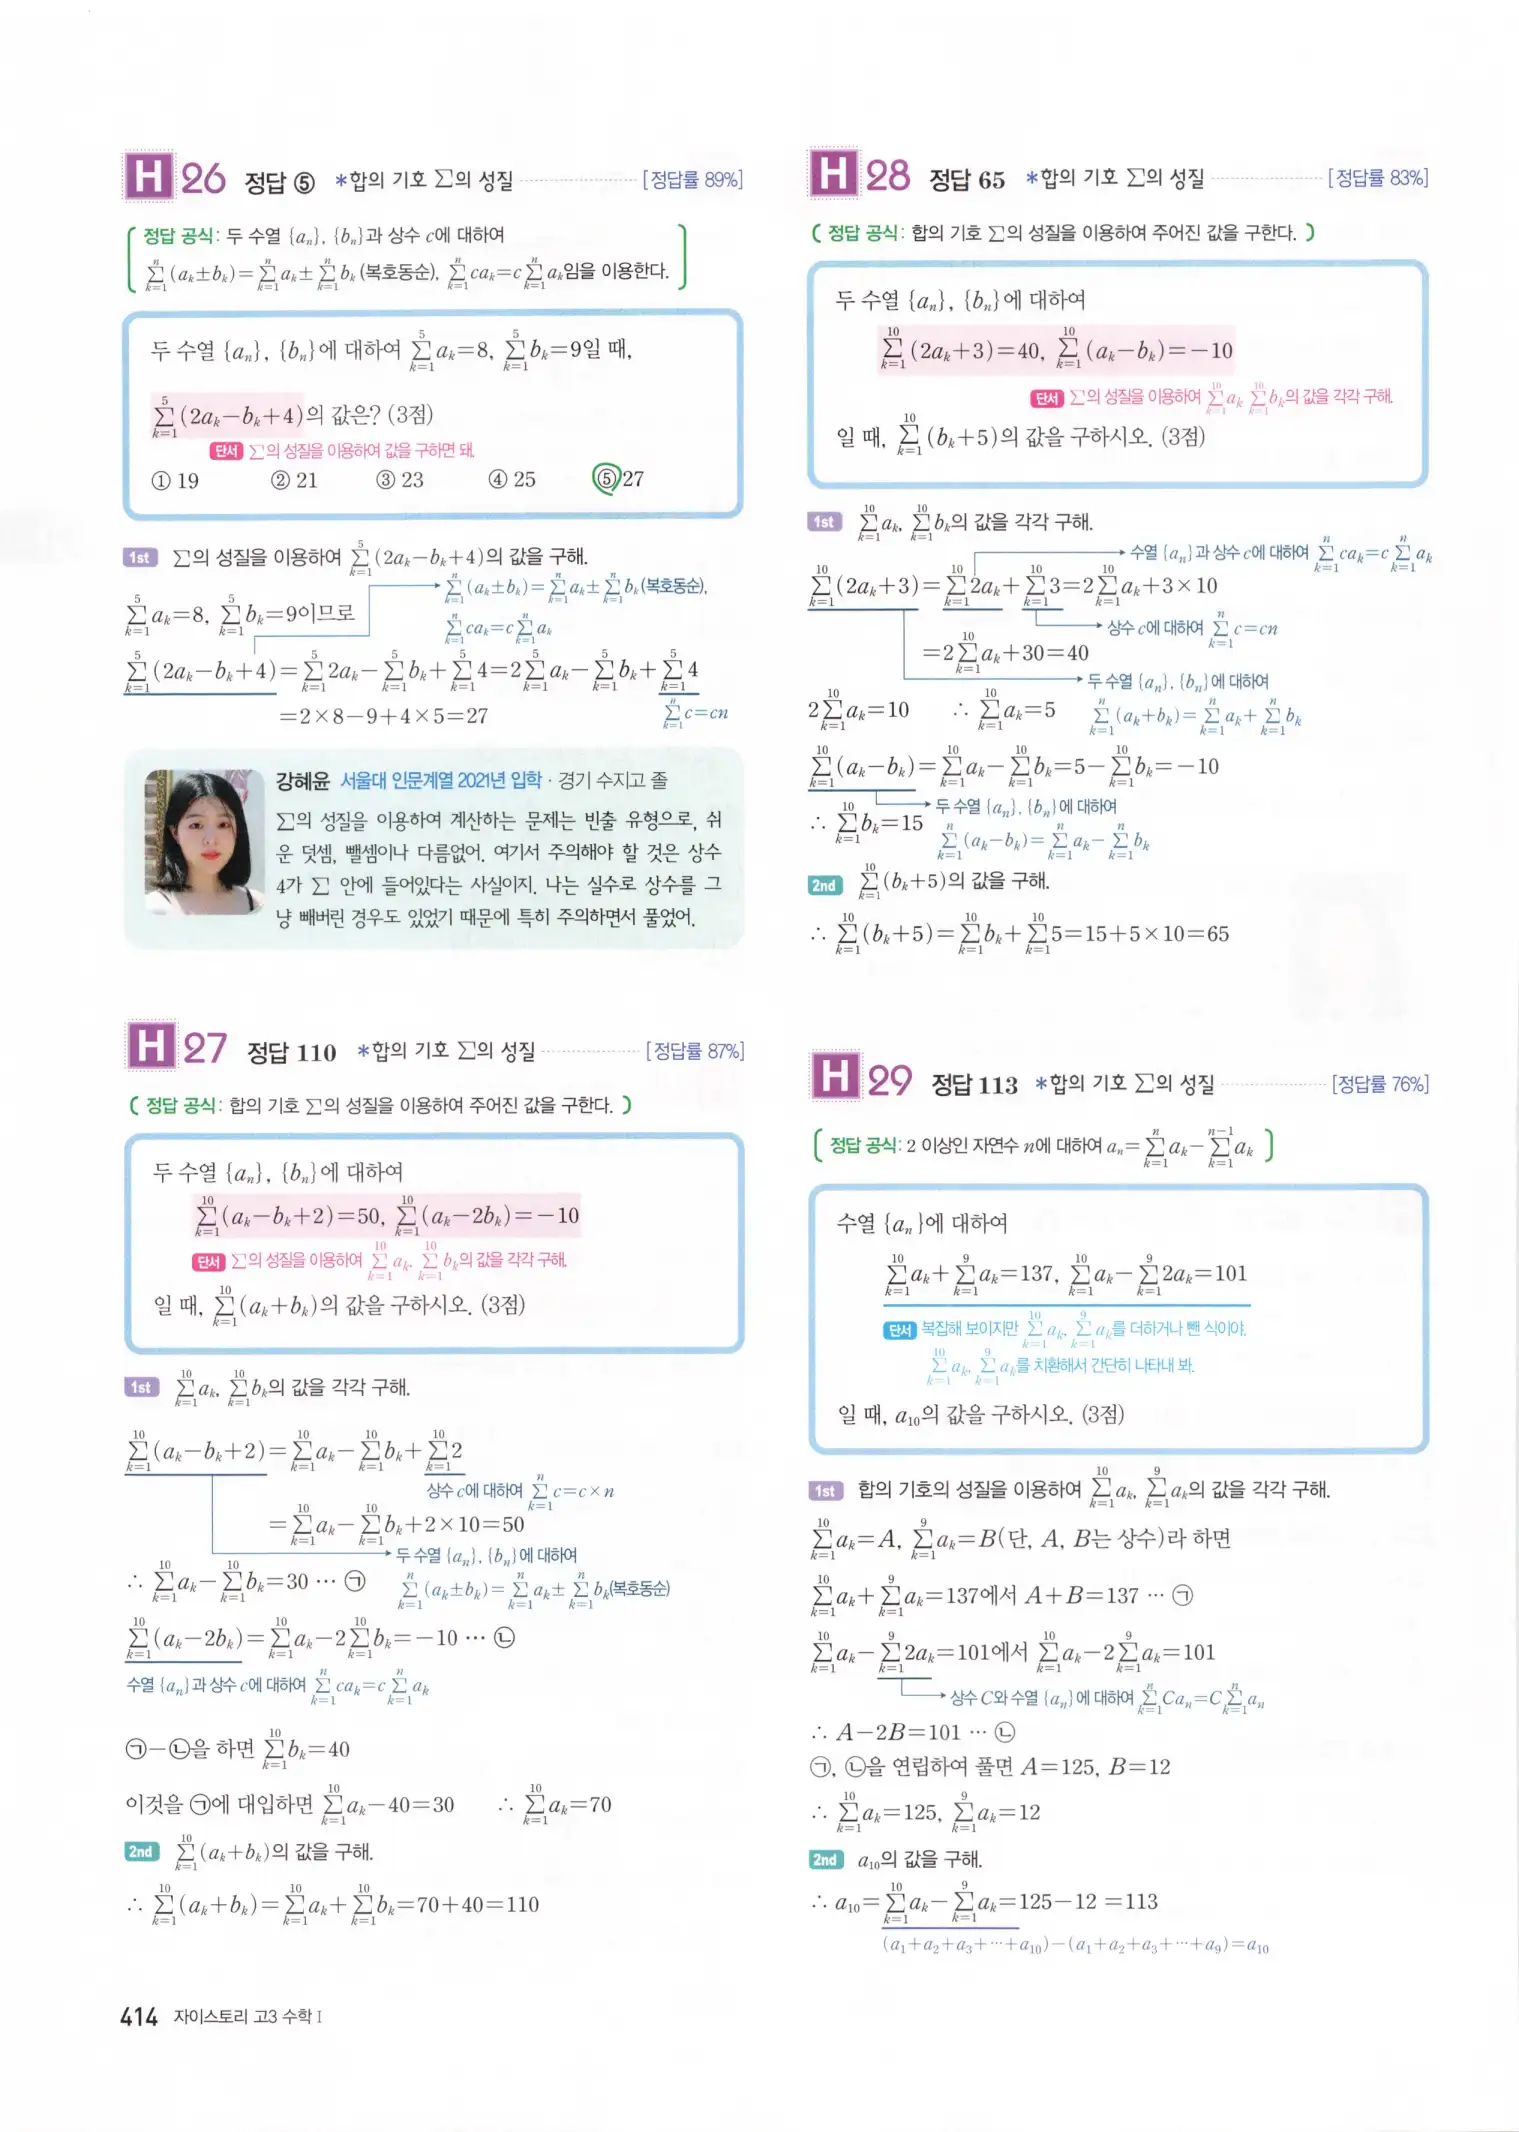 H 26 정답 ⑤ *합의 기호 ∑의 성질 [정답률 89%]
정답 공식: 두 수열 {aₙ}, {bₙ}과 상수 c에 대하여
∑_{k=1}^{n}(aₖ±bₖ)=∑_{k=1}^{n}aₖ±∑_{k=1}^{n}bₖ(복호동순), ∑_{k=1}^{n}caₖ=c∑_{k=1}^{n}aₖ임을 이용한다.
두 수열 {aₙ}, {bₙ}에 대하여 ∑_{k=1}^{5}aₖ=8, ∑_{k=1}^{5}bₖ=9일 때,
∑_{k=1}^{5}(2aₖ-bₖ+4)의 값은? (3점)
단서 ∑의 성질을 이용하여 값을 구하면 돼.
① 19 ② 21 ③ 23 ④ 25 ⑤ 27
1st ∑의 성질을 이용하여 ∑_{k=1}^{5}(2aₖ-bₖ+4)의 값을 구해.
∑_{k=1}^{n}(aₖ±bₖ)=∑_{k=1}^{n}aₖ±∑_{k=1}^{n}bₖ(복호동순),
∑_{k=1}^{5}aₖ=8, ∑_{k=1}^{5}bₖ=9이므로
∑_{k=1}^{n}caₖ=c∑_{k=1}^{n}aₖ
∑_{k=1}^{5}(2aₖ-bₖ+4)=∑_{k=1}^{5}2aₖ-∑_{k=1}^{5}bₖ+∑_{k=1}^{5}4=2∑_{k=1}^{5}aₖ-∑_{k=1}^{5}bₖ+∑_{k=1}^{5}4
=2×8-9+4×5=27 ∑_{k=1}^{n}c=cn
강혜윤 서울대 인문계열 2021년 입학 · 경기 수지고 졸
∑의 성질을 이용하여 계산하는 문제는 빈출 유형으로, 쉬
운 덧셈, 뺄셈이나 다름없어. 여기서 주의해야 할 것은 상수
4가 ∑ 안에 들어있다는 사실이지. 나는 실수로 상수를 그
냥 빼버린 경우도 있었기 때문에 특히 주의하면서 풀었어.
H 27 정답 110 *합의 기호 ∑의 성질 [정답률 87%]
정답 공식: 합의 기호 ∑의 성질을 이용하여 주어진 값을 구한다.
두 수열 {aₙ}, {bₙ}에 대하여
∑_{k=1}^{10}(aₖ-bₖ+2)=50, ∑_{k=1}^{10}(aₖ-2bₖ)=-10
단서 ∑의 성질을 이용하여 ∑_{k=1}^{10}aₖ, ∑_{k=1}^{10}bₖ의 값을 각각 구해.
일 때, ∑_{k=1}^{10}(aₖ+bₖ)의 값을 구하시오. (3점)
1st ∑_{k=1}^{10}aₖ, ∑_{k=1}^{10}bₖ의 값을 각각 구해.
∑_{k=1}^{10}(aₖ-bₖ+2)=∑_{k=1}^{10}aₖ-∑_{k=1}^{10}bₖ+∑_{k=1}^{10}2
상수 c에 대하여 ∑_{k=1}^{n}c=c×n
=∑_{k=1}^{10}aₖ-∑_{k=1}^{10}bₖ+2×10=50
두 수열 {aₙ}, {bₙ}에 대하여
∴ ∑_{k=1}^{10}aₖ-∑_{k=1}^{10}bₖ=30 ··· ㉠ ∑_{k=1}^{n}(aₖ±bₖ)=∑_{k=1}^{n}aₖ±∑_{k=1}^{n}bₖ(복호동순)
∑_{k=1}^{10}(aₖ-2bₖ)=∑_{k=1}^{10}aₖ-2∑_{k=1}^{10}bₖ=-10 ··· ㉡
수열 {aₙ}과 상수 c에 대하여 ∑_{k=1}^{n}caₖ=c∑_{k=1}^{n}aₖ
㉠-㉡을 하면 ∑_{k=1}^{10}bₖ=40
이것을 ㉠에 대입하면 ∑_{k=1}^{10}aₖ-40=30 ∴ ∑_{k=1}^{10}aₖ=70
2nd ∑_{k=1}^{10}(aₖ+bₖ)의 값을 구해.
∴ ∑_{k=1}^{10}(aₖ+bₖ)=∑_{k=1}^{10}aₖ+∑_{k=1}^{10}bₖ=70+40=110
H 28 정답 65 *합의 기호 ∑의 성질 [정답률 83%]
정답 공식: 합의 기호 ∑의 성질을 이용하여 주어진 값을 구한다.
두 수열 {aₙ}, {bₙ}에 대하여
∑_{k=1}^{10}(2aₖ+3)=40, ∑_{k=1}^{10}(aₖ-bₖ)=-10
단서 ∑의 성질을 이용하여 ∑_{k=1}^{10}aₖ ∑_{k=1}^{10}bₖ의 값을 각각 구해.
일 때, ∑_{k=1}^{10}(bₖ+5)의 값을 구하시오. (3점)
1st ∑_{k=1}^{10}aₖ, ∑_{k=1}^{10}bₖ의 값을 각각 구해.
수열 {aₙ}과 상수 c에 대하여 ∑_{k=1}^{n}caₖ=c∑_{k=1}^{n}aₖ
∑_{k=1}^{10}(2aₖ+3)=∑_{k=1}^{10}2aₖ+∑_{k=1}^{10}3=2∑_{k=1}^{10}aₖ+3×10
상수 c에 대하여 ∑_{k=1}^{n}c=cn
=2∑_{k=1}^{10}aₖ+30=40
두 수열 {aₙ}, {bₙ}에 대하여
2∑_{k=1}^{10}aₖ=10 ∴ ∑_{k=1}^{10}aₖ=5 ∑_{k=1}^{n}(aₖ+bₖ)=∑_{k=1}^{n}aₖ+∑_{k=1}^{n}bₖ
∑_{k=1}^{10}(aₖ-bₖ)=∑_{k=1}^{10}aₖ-∑_{k=1}^{10}bₖ=5-∑_{k=1}^{10}bₖ=-10
두 수열 {aₙ}, {bₙ}에 대하여
∴ ∑_{k=1}^{10}bₖ=15 ∑_{k=1}^{n}(aₖ-bₖ)=∑_{k=1}^{n}aₖ-∑_{k=1}^{n}bₖ
2nd ∑_{k=1}^{10}(bₖ+5)의 값을 구해.
∴ ∑_{k=1}^{10}(bₖ+5)=∑_{k=1}^{10}bₖ+∑_{k=1}^{10}5=15+5×10=65
H 29 정답 113 *합의 기호 ∑의 성질 [정답률 76%]
정답 공식: 2 이상인 자연수 n에 대하여 aₙ=∑_{k=1}^{n}aₖ-∑_{k=1}^{n-1}aₖ
수열 {aₙ}에 대하여
∑_{k=1}^{10}aₖ+∑_{k=1}^{9}aₖ=137, ∑_{k=1}^{10}aₖ-∑_{k=1}^{9}2aₖ=101
단서 복잡해 보이지만 ∑_{k=1}^{10}aₖ, ∑_{k=1}^{9}aₖ를 더하거나 뺀 식이야.
∑_{k=1}^{10}aₖ, ∑_{k=1}^{9}aₖ를 치환해서 간단히 나타내 봐.
일 때, a₁₀의 값을 구하시오. (3점)
1st 합의 기호의 성질을 이용하여 ∑_{k=1}^{10}aₖ, ∑_{k=1}^{9}aₖ의 값을 각각 구해.
∑_{k=1}^{10}aₖ=A, ∑_{k=1}^{9}aₖ=B(단, A, B는 상수)라 하면
∑_{k=1}^{10}aₖ+∑_{k=1}^{9}aₖ=137에서 A+B=137 ··· ㉠
∑_{k=1}^{10}aₖ-∑_{k=1}^{9}2aₖ=101에서 ∑_{k=1}^{10}aₖ-2∑_{k=1}^{9}aₖ=101
상수 C와 수열 {aₙ}에 대하여 ∑_{k=1}^{n}Caₙ=C∑_{k=1}^{n}aₙ
∴ A-2B=101 ··· ㉡
㉠, ㉡을 연립하여 풀면 A=125, B=12
∴ ∑_{k=1}^{10}aₖ=125, ∑_{k=1}^{9}aₖ=12
2nd a₁₀의 값을 구해.
∴ a₁₀=∑_{k=1}^{10}aₖ-∑_{k=1}^{9}aₖ=125-12 =113
(a₁+a₂+a₃+···+a₁₀)-(a₁+a₂+a₃+···+a₉)=a₁₀
414 자이스토리 고3 수학 I